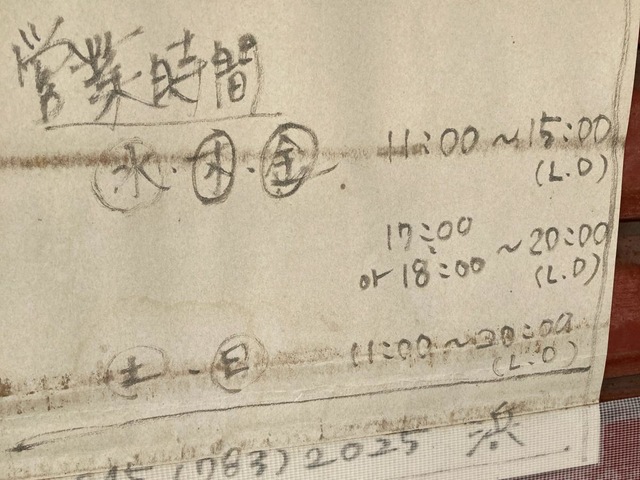 営業時間
水・木・金 11:00～15:00
(L.O)
17:00
or 18:00 ～20:00
(L.O)
土・日 11:00～20:00
(L.O)
045 (783) 2025 浜